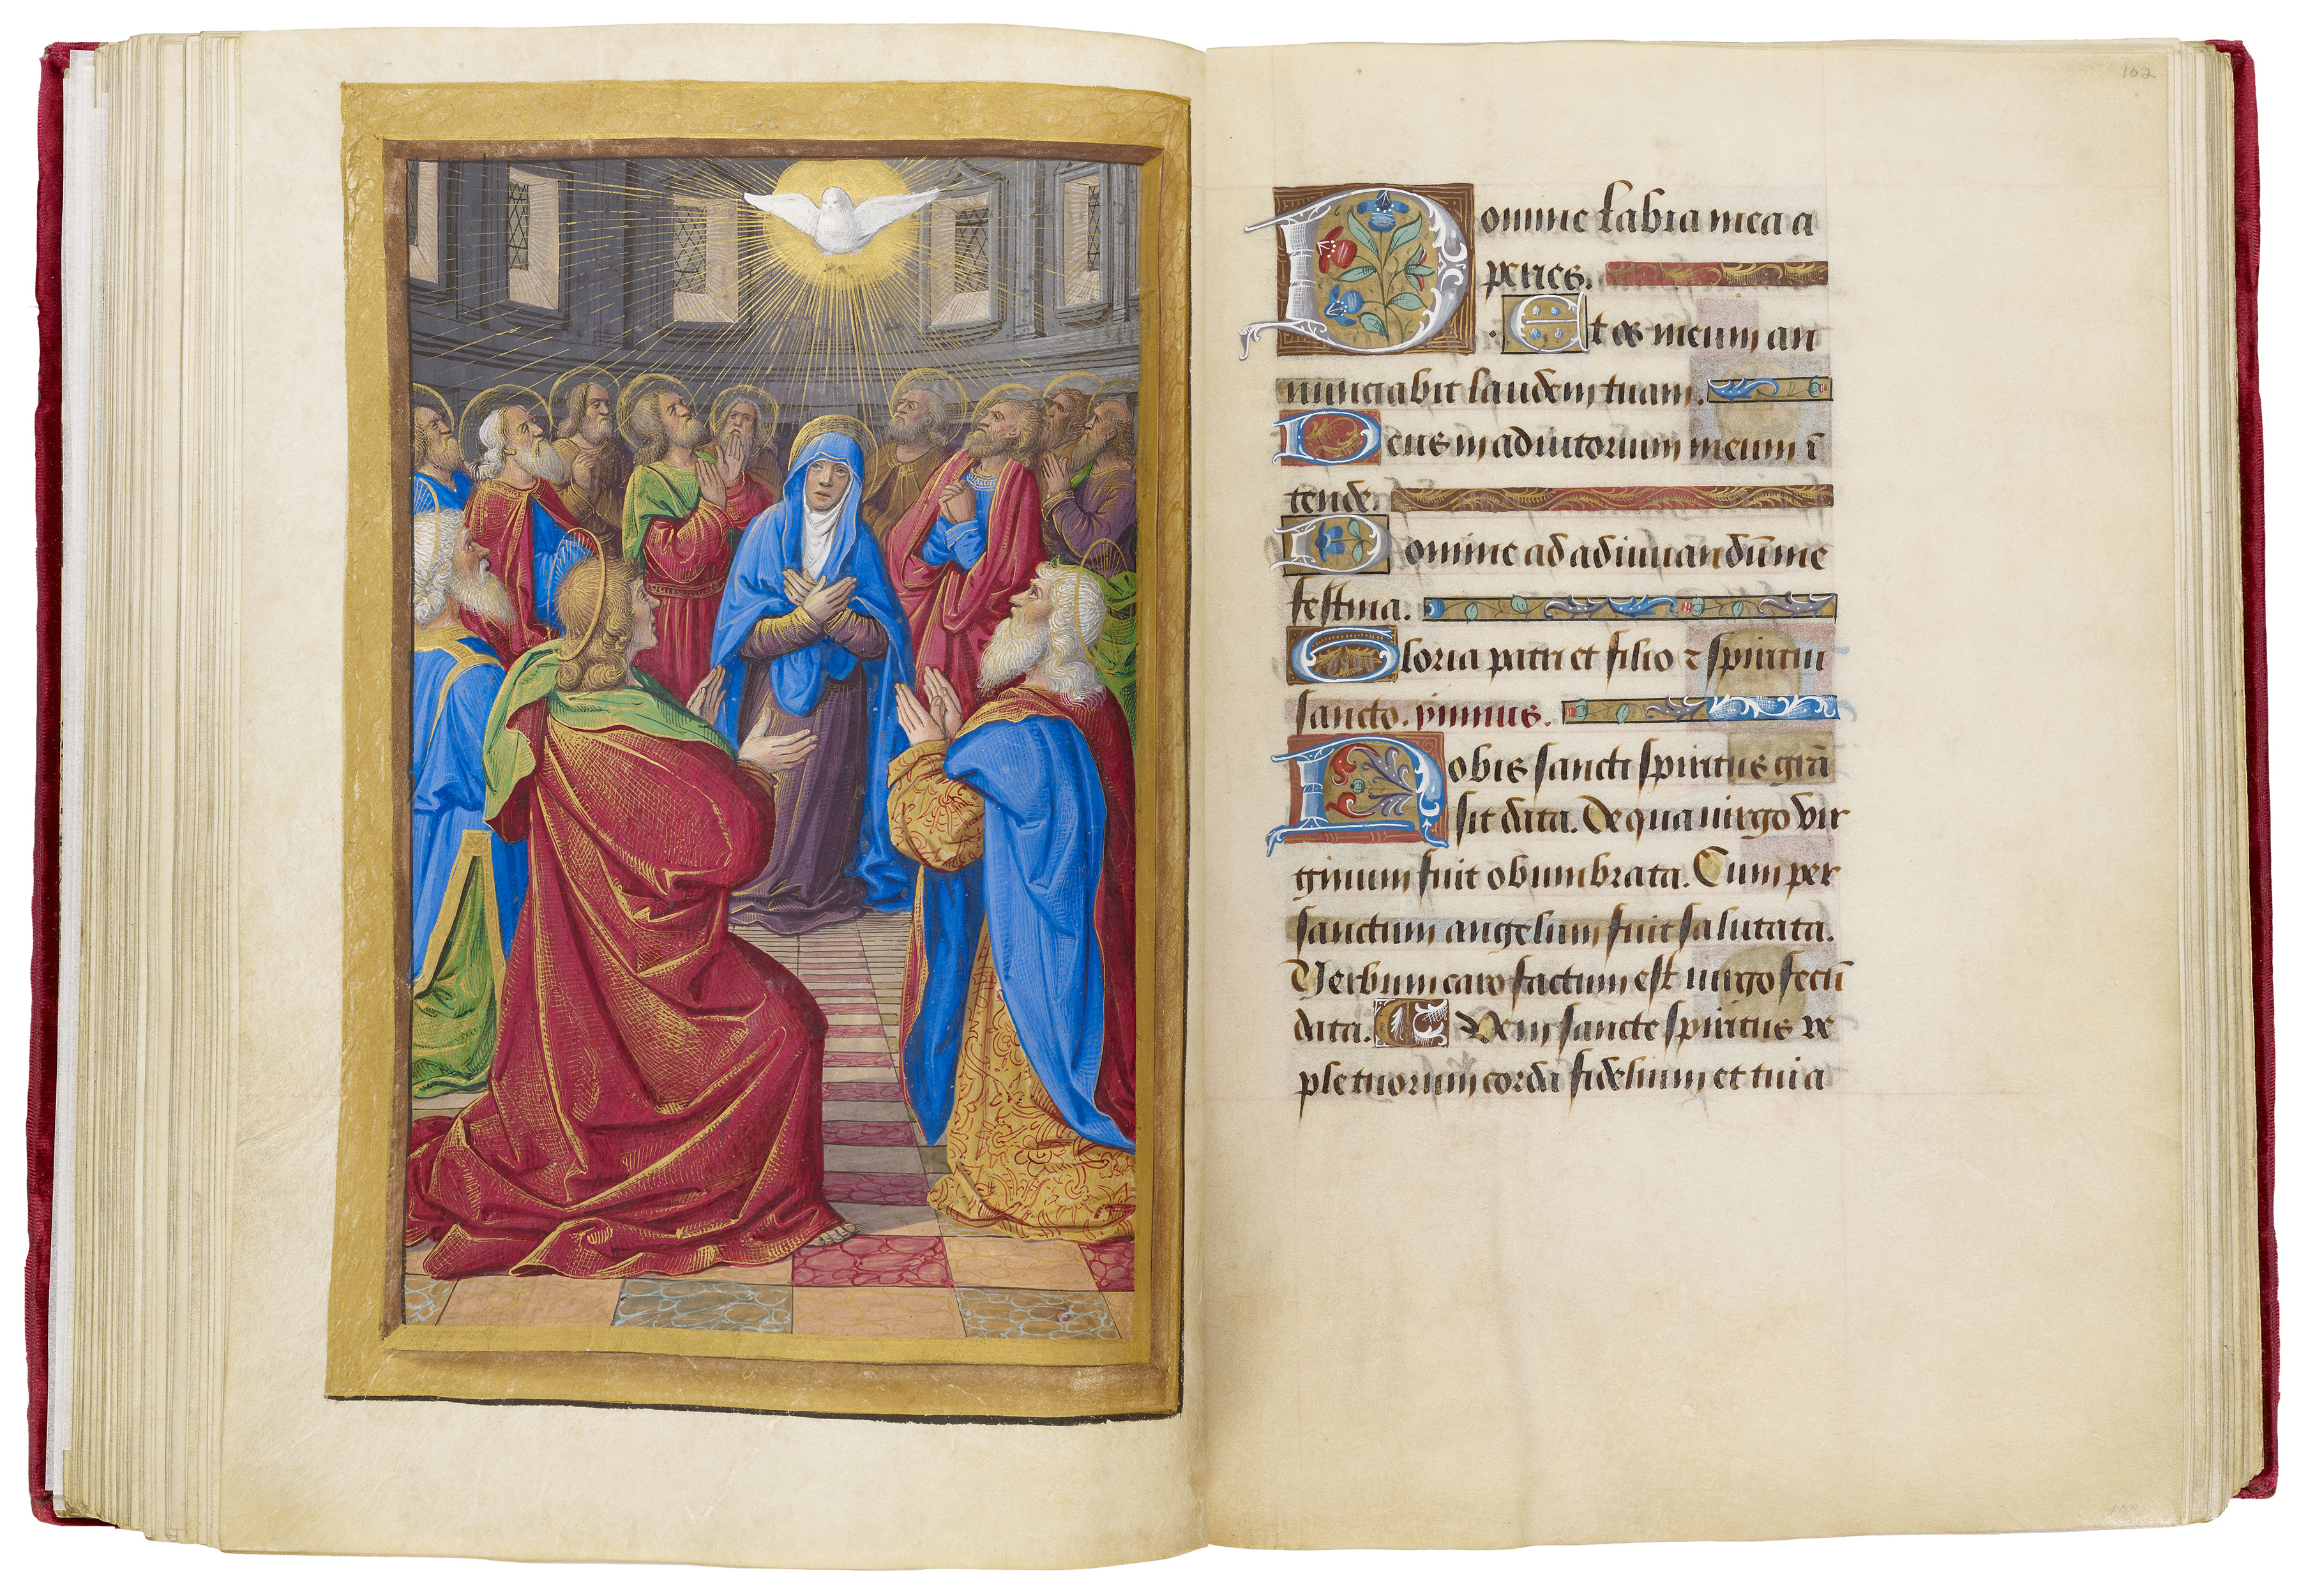 102
Domine labia mea a
peries.
Et os meum an
nunciabit laudem tuam.
Deus in adiutorium meum ī
tende.
Domine ad adiuuandū me
festina.
Gloria patri et filio ⁊ spiritui
sancto. ymnus.
Nobis sancti spiritus grā
sit data. De qua uirgo vir
ginum fuit obumbrata. Cum per
sanctum angelum fuit salutata.
Verbum caro factum est uirgo fecū
data. Veni sancte spiritus re
ple tuorum corda fidelium et tui a